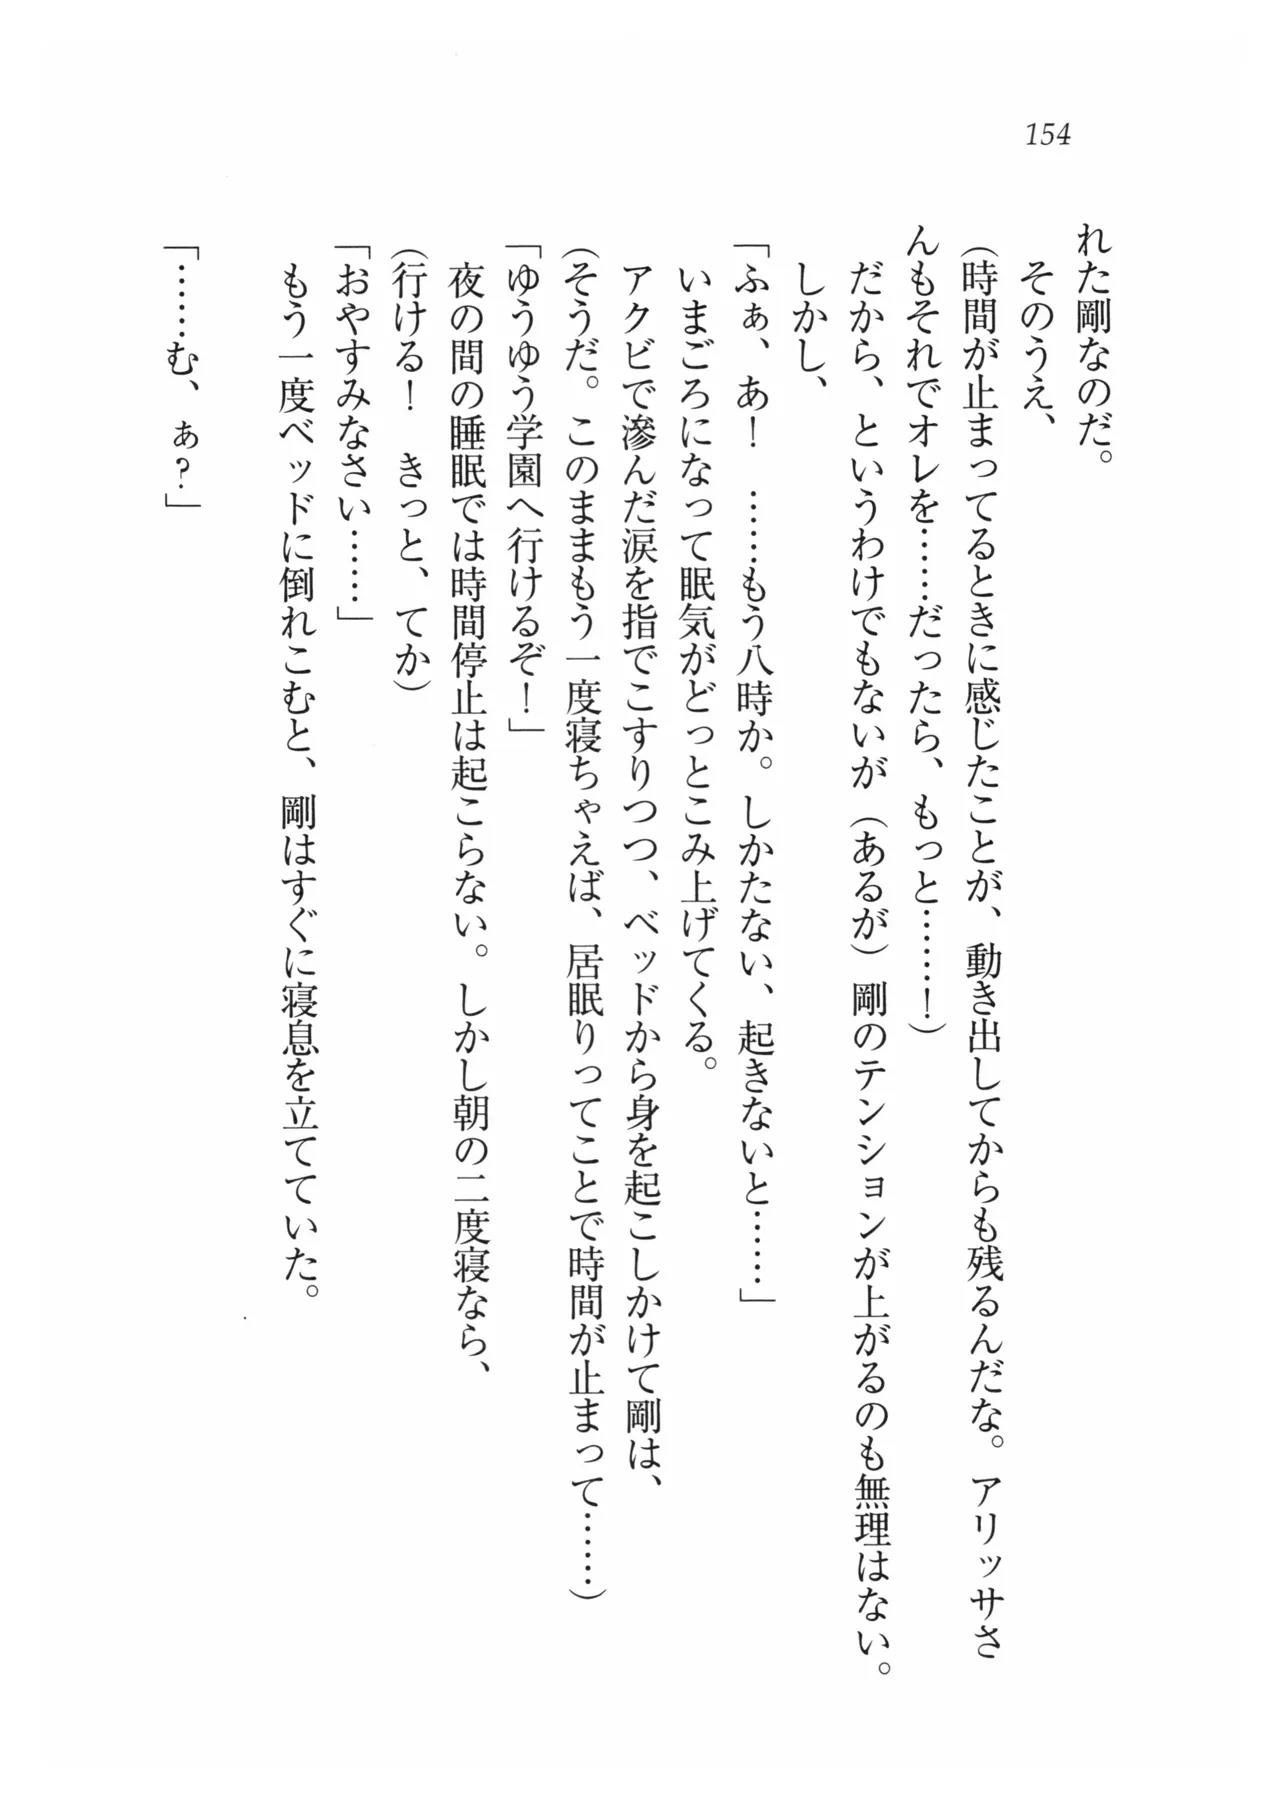 154
れた剛なのだ。
そのうえ、
(時間が止まってるときに感じたことが、動き出してからも残るんだな。アリッサさ
んもそれでオレを……だったら、もっと……!)
だから、というわけでもないが(あるが)剛のテンションが上がるのも無理はない。
しかし、
「ふぁ、あ! ……もう八時か。しかたない、起きないと……」
いまごろになって眠気がどっとこみ上げてくる。
アクビで滲んだ涙を指でこすりつつ、ベッドから身を起こしかけて剛は、
(そうだ。このままもう一度寝ちゃえば、居眠りってことで時間が止まって……)
「ゆうゆう学園へ行けるぞ!」
夜の間の睡眠では時間停止は起こらない。しかし朝の二度寝なら、
(行ける! きっと、てか)
「おやすみなさい……」
もう一度ベッドに倒れこむと、剛はすぐに寝息を立てていた。
「……む、ぁ?」